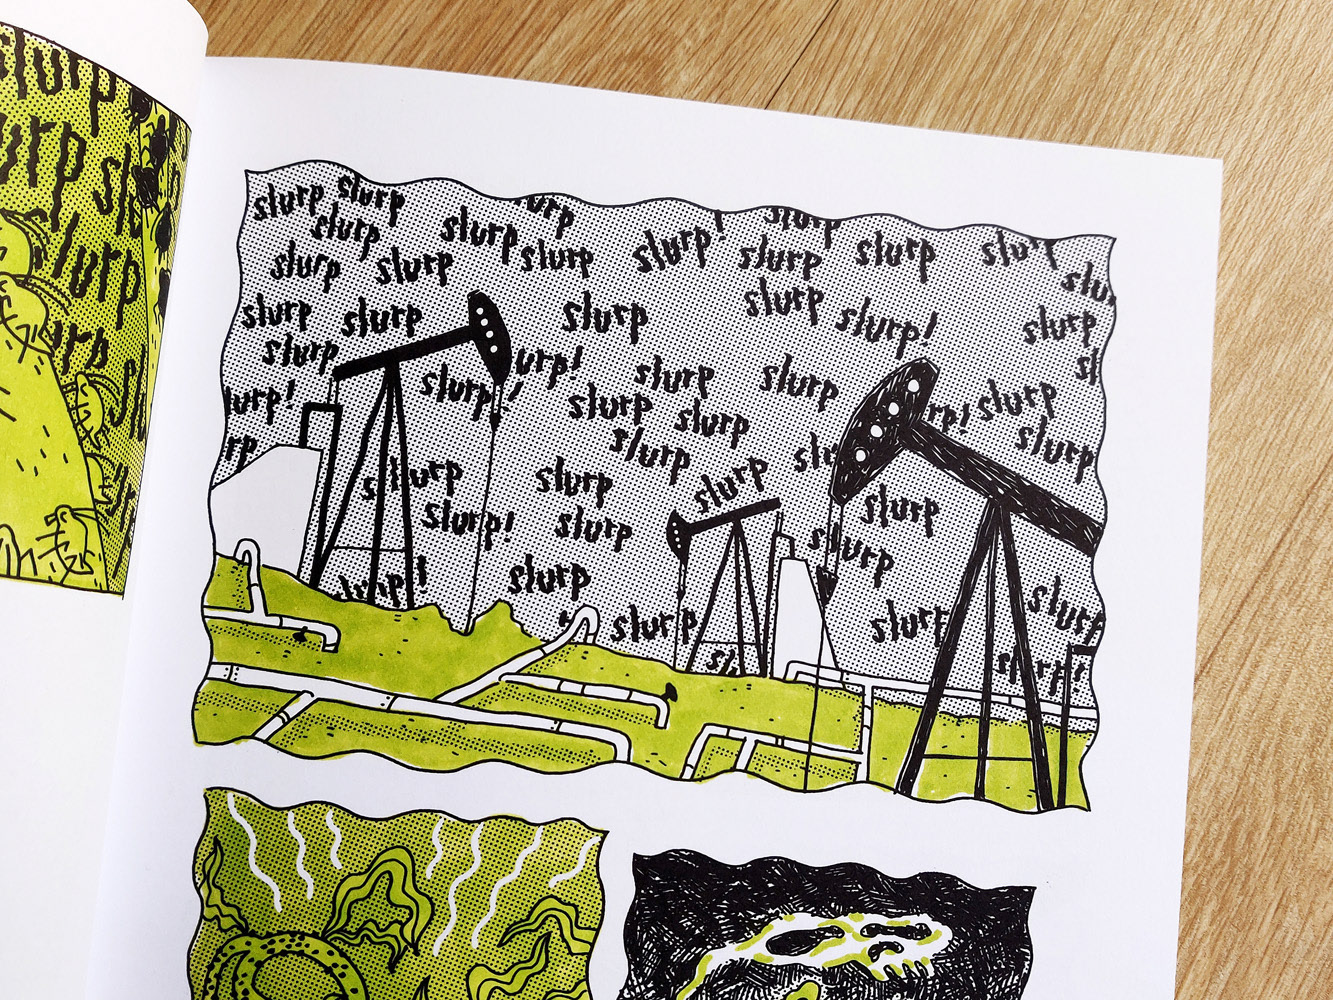 slurp
slurp
slurp
slurp
slurp slurp
slurp slurp! slurp slurp
slurp slurp slurp
slurp slurp
slurp slurp slurp slurp! slurp
slurp
slurp! slurp slurp slurp
slurp slurp slurp
slurp slurp
slurp slurp slurp
slurp! slurp slurp
slurp
slurp slurp
slurp slurp
slurp!
slurp
slurp
slurp